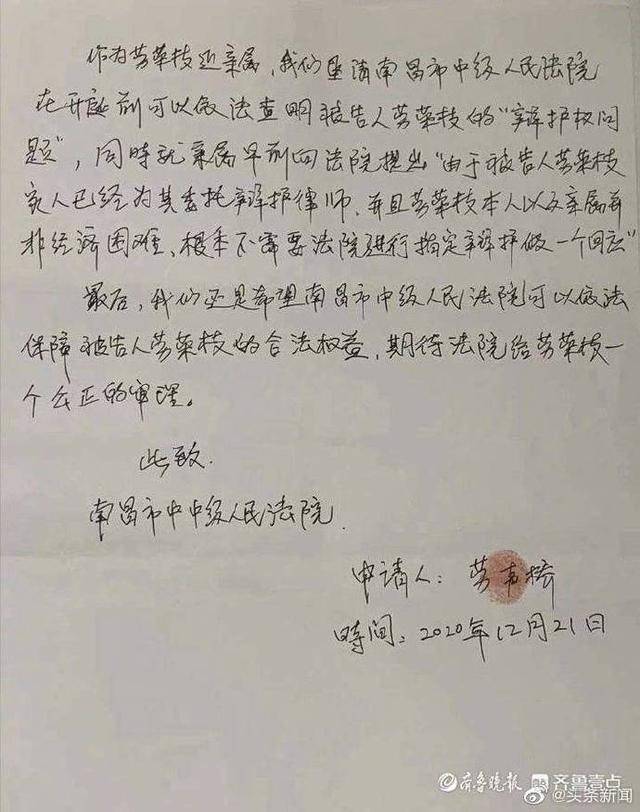 作为劳荣枝近亲属，我们恳请南昌市中级人民法院
在开庭前可以依法查明被告人劳荣枝的“辩护权问
题”，同时就亲属早前向法院提出“由于被告人劳荣枝
家人已经为其委托辩护律师、并且劳荣枝本人以及亲属并
非经济困难、根本不需要法院进行指定辩护做一个回应”
最后，我们还是希望南昌市中级人民法院可以依法
保障被告人劳荣枝的合法权益，期待法院给劳荣枝一
个公正的审理。
此致.
南昌市中中级人民法院.
申请人：劳声桥
时间：2020年12月21日
齐鲁晚报 齐鲁壹点
@头条新闻